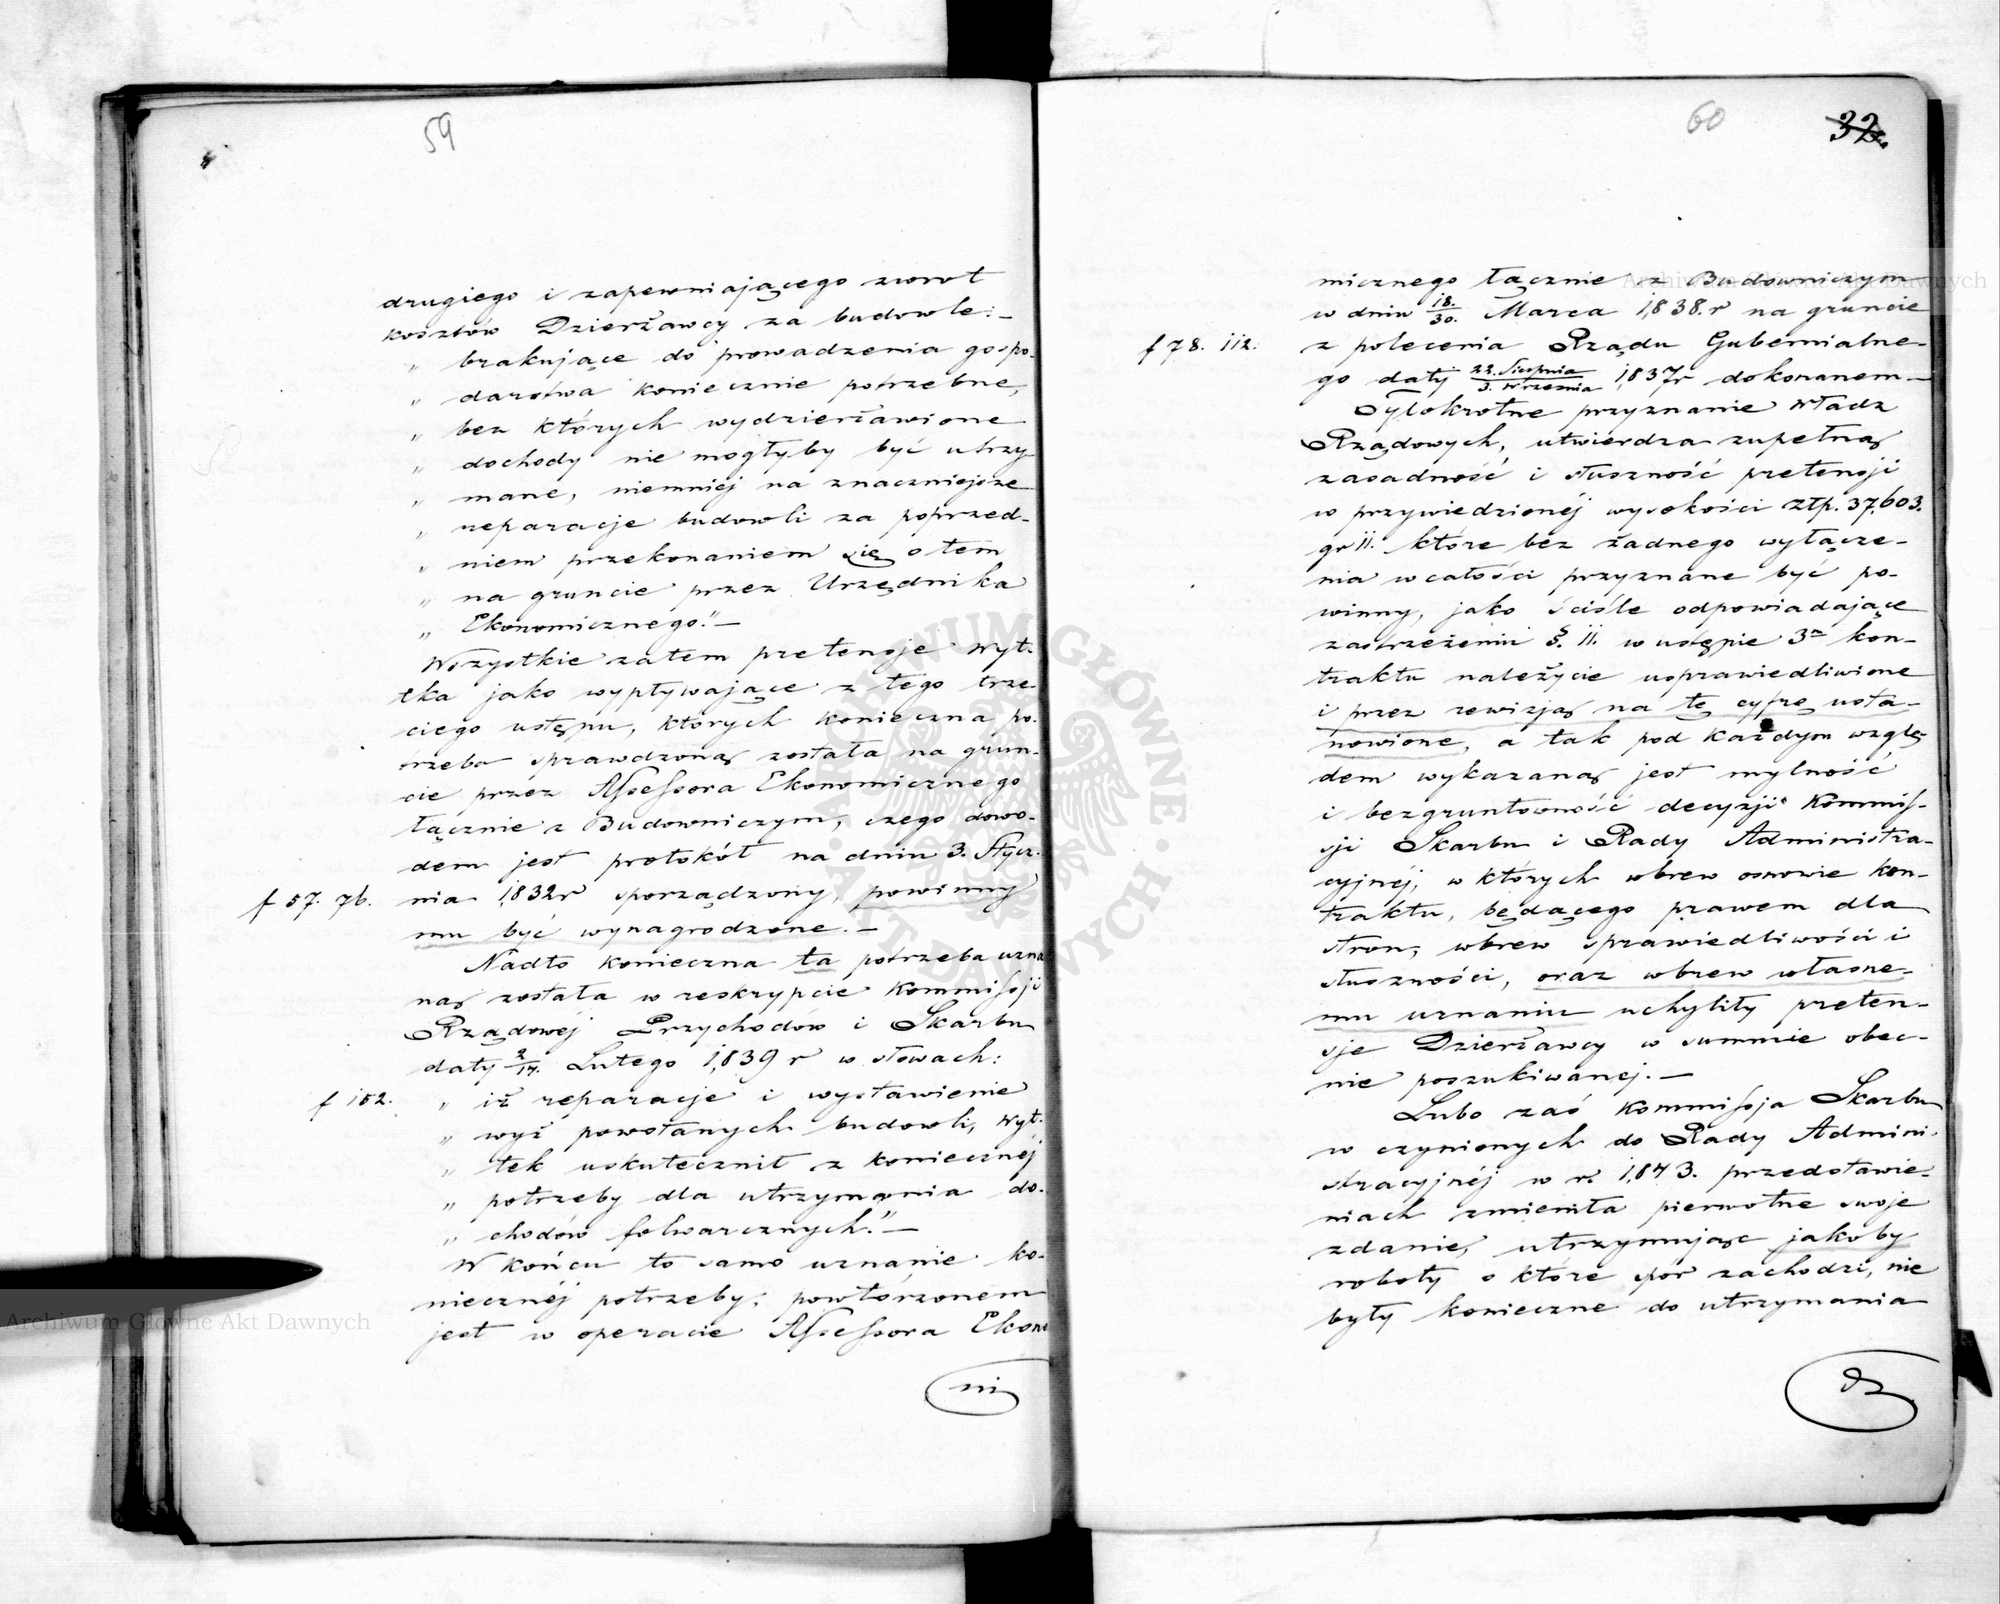 59
drugiego i zapewniającego zwrot
kosztów Dzierżawcy za budowle:—
„ brakujące do prowadzenia gospo-
„ darstwa koniecznie potrzebne,
„ bez których wydzierżawione
„ dochody nie mogłyby być utrzy-
„ mane, niemniej na znaczniejsze
„ reparacje budowli za poprzed-
„ niem przekonaniem się o tem
„ na gruncie przez Urzędnika
„ Ekonomicznego."—
Wszystkie zatem pretensje Wyt-
tka jako wypływające z tego trze-
ciego ustępu, których konieczna po-
trzeba sprawdzoną została na grun-
cie przez Assessora Ekonomicznego
łącznie z Budowniczym, czego dowo-
dem jest protokół na dniu 3. Stycz-
f 57. 76. nia 1832r sporządzony, powinny
mu być wynagrodzone.—
Nadto konieczna ta potrzeba uzna
ną została w reskrypcie Kommissji
Rządowéj Przychodów i Skarbu
daty 2/14. Lutego 1839 r w słowach:
f 102. „ iż reparacje i wystawienie
„ wyż powołanych budowli, Wyt-
„ tek uskutecznił z koniecznéj
„ potrzeby dla utrzymania do-
„ chodów folwarcznych."—
W końcu to samo uznanie ko-
niecznéj potrzeby, powtórzonem
jest w operacie Assessora Ekono
mi
60 32.
micznego łącznie z Budowniczym
w dniu 18./30. Marca 1838.r na gruncie
f 78. 112. z polecenia Rządu Gubernialne-
go daty 22. Sierpnia/3. Września 1837r dokonanem—
Tylokrotne przyznanie Władz
Rządowych, utwierdza zupełną
zasadność i słuszność pretensji
w przywiedzionéj wysokości złp. 37,603.
gr 11. które bez żadnego wyłącze-
nia w całości przyznane być po-
winny, jako ściśle odpowiadające
zastrzeżeniu §. 11. w ustępie 3m kon-
traktu należycie usprawiedliwione
i przez rewizją na tę cyfrę usta-
nowione, a tak pod każdym wzglę-
dem wykazaną jest mylność
i bezgruntowność decyzji Kommis-
sji Skarbu i Rady Administra-
cyjnéj, w których wbrew osnowie kon-
traktu, będącego prawem dla
stron, wbrew sprawiedliwości i
słuszności, oraz wbrew własne-
mu uznaniu uchyliły preten-
sje Dzierżawcy w summie obec-
nie poszukiwanej.—
Lubo zaś Kommissja Skarbu
w czynionych do Rady Admini-
stracyjnéj w r. 1843. przedstawie-
niach zmieniła pierwotne swoje
zdanie, utrzymując jakoby
roboty o które spór zachodzi, nie
były konieczne do utrzymania
Archiwum Główne Akt Dawnych
Archiwum Główne Akt Dawnych
ARCHIWUM GŁÓWNE AKT DAWNYCH